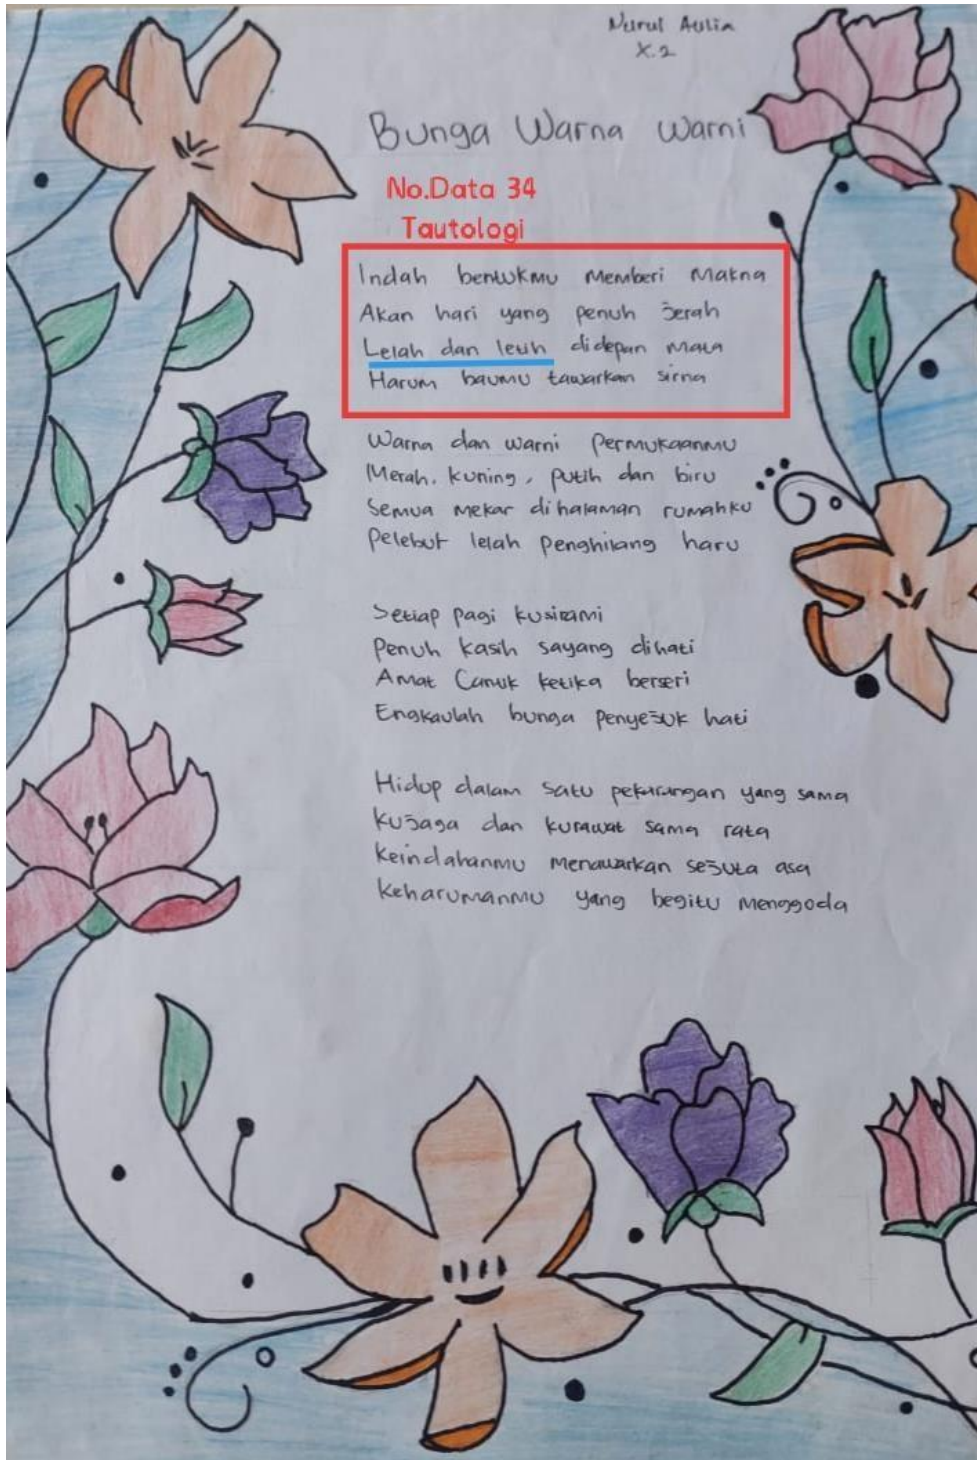 Nurul Aulia
X.2
Bunga Warna Warni
No.Data 34
Tautologi
Indah bentukmu memberi makna
Akan hari yang penuh jerah
Lelah dan letih didepan mata
Harum baumu tawarkan sirna
Warna dan warni permukaanmu
Merah, kuning, putih dan biru
Semua mekar dihalaman rumahku
Pelebut lelah penghilang haru
Setiap pagi kusirami
Penuh kasih sayang dihati
Amat Cantik ketika berseri
Engkaulah bunga penyejuk hati
Hidup dalam satu pekarangan yang sama
Kujaga dan kurawat sama rata
Keindahanmu menawarkan sejuta asa
Keharumanmu yang begitu menggoda